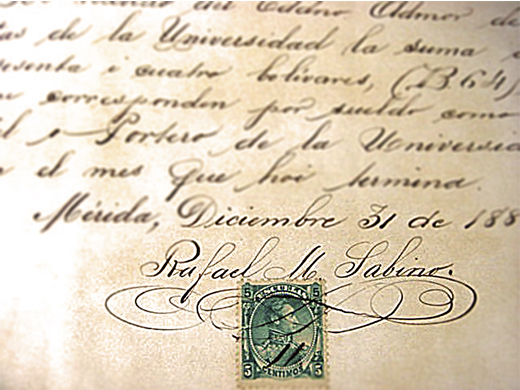 del Exmo Admor de
tas de la Universidad la suma
senta i cuatro bolívares, (B.64)
corresponden por sueldo como
l o Portero de la Universid
el mes que hoi termina.
Mérida, Diciembre 31 de 188
Rafael M. Sabino.
5 5
5 CENTIMOS 5